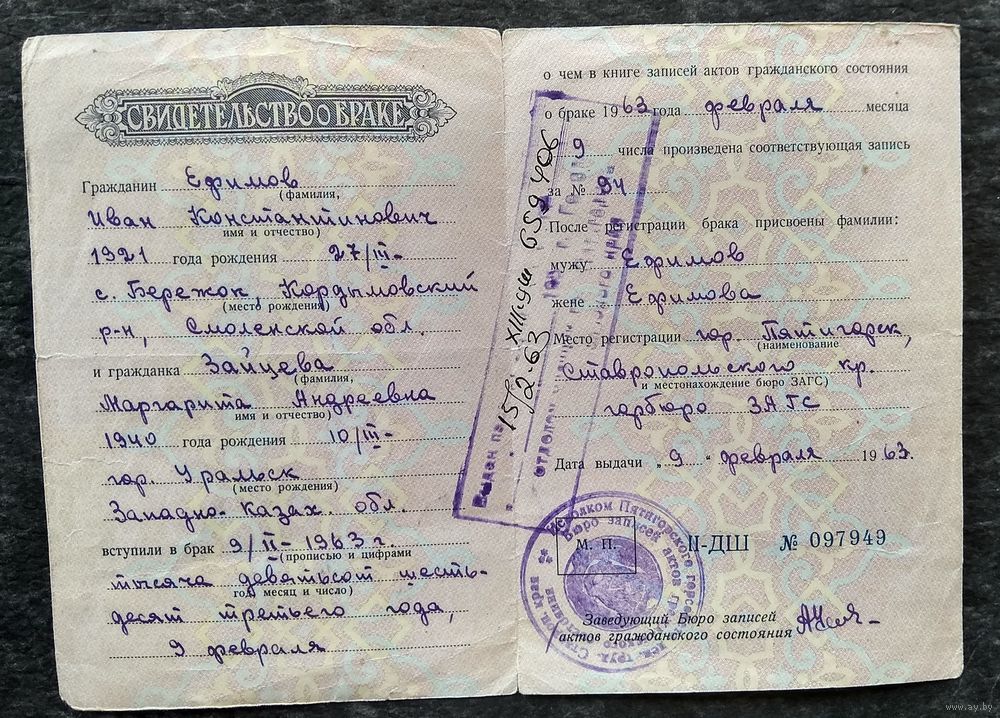 СВИДЕТЕЛЬСТВО О БРАКЕ
Гражданин Ефимов
(фамилия,
Иван Константинович
имя и отчество)
1921 года рождения 27/III-
с. Бережок, Кардымовский
(место рождения)
р-н, Смоленской обл.
и гражданка Зайцева
(фамилия,
Маргарита Андреевна
имя и отчество)
1940 года рождения 10/III-
гор. Уральск
(место рождения)
Западно-Казах. обл.
вступили в брак 9/II-1963 г.
(прописью и цифрами
тысяча девятьсот шесть-
год, месяц и число)
десят третьего года,
9 февраля
о чем в книге записей актов гражданского состояния
о браке 1963 года февраля месяца
9 числа произведена соответствующая запись
за № 94
После регистрации брака присвоены фамилии:
мужу Ефимов
жене Ефимова
Место регистрации гор. Пятигорск,
(наименование
Ставропольского кр.
и местонахождение бюро ЗАГС)
горбюро ЗАГС
Дата выдачи „9" февраля 1963.
М. П.
II-ДШ № 097949
Заведующий Бюро записей
актов гражданского состояния
Выдан
659406
15/2-63
отделом
Исполком Пятигорского
Бюро записей актов
www.ay.by